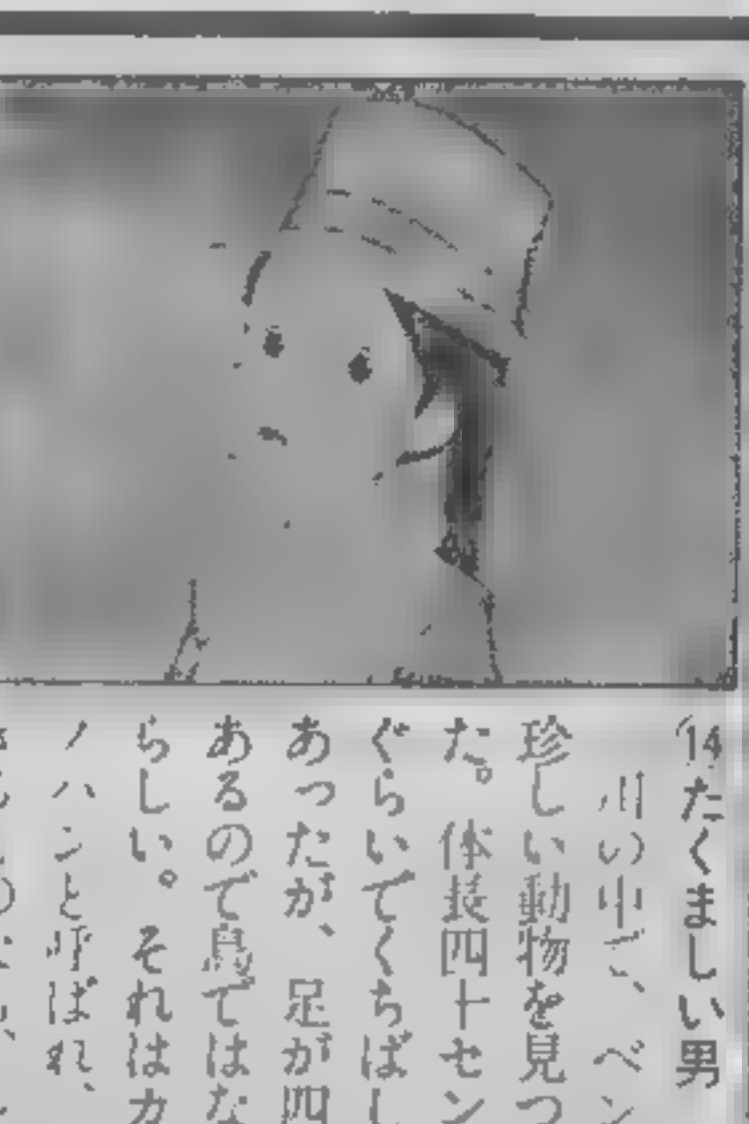 14たくましい男
川の中で、ベン
珍しい動物を見つ
た。体長四十セン
ぐらいでくちばし
あったが、足が四
あるので鳥ではな
らしい。それはカ
ノハシと呼ばれ、